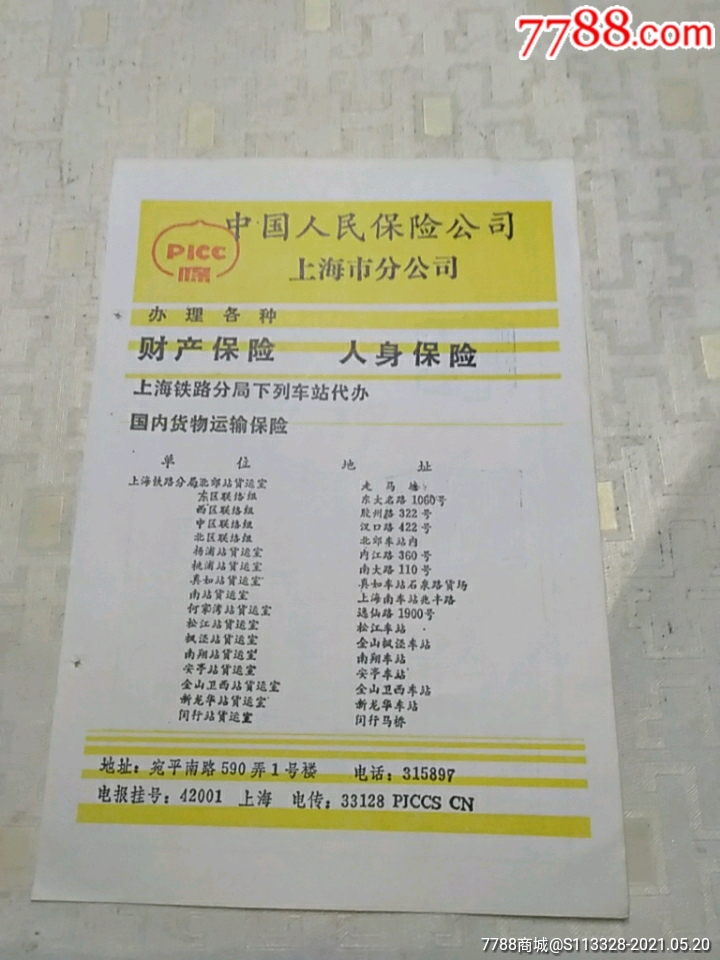 7788.com
中国人民保险公司
PICC
上海市分公司
办理各种
财产保险 人身保险
上海铁路分局下列车站代办
国内货物运输保险
单位 地址
上海铁路分局北郊站货运室 走马塘
东区联络组 东大名路1060号
西区联络组 胶州路322号
中区联络组 汉口路422号
北区联络组 北郊车站内
杨浦站货运室 内江路360号
桃浦站货运室 南大路110号
真如站货运室 真如车站石泉路货场
南站货运室 上海南车站兆丰路
何家湾站货运室 逸仙路1900号
松江站货运室 松江车站
枫泾站货运室 金山枫泾车站
南翔站货运室 南翔车站
安亭站货运室 安亭车站
金山卫西站货运室 金山卫西车站
新龙华站货运室 新龙华车站
闵行站货运室 闵行马桥
地址：宛平南路590弄1号楼 电话：315897
电报挂号：42001 上海 电传：33128 PJCCS CN
7788商城@S113328-2021.05.20